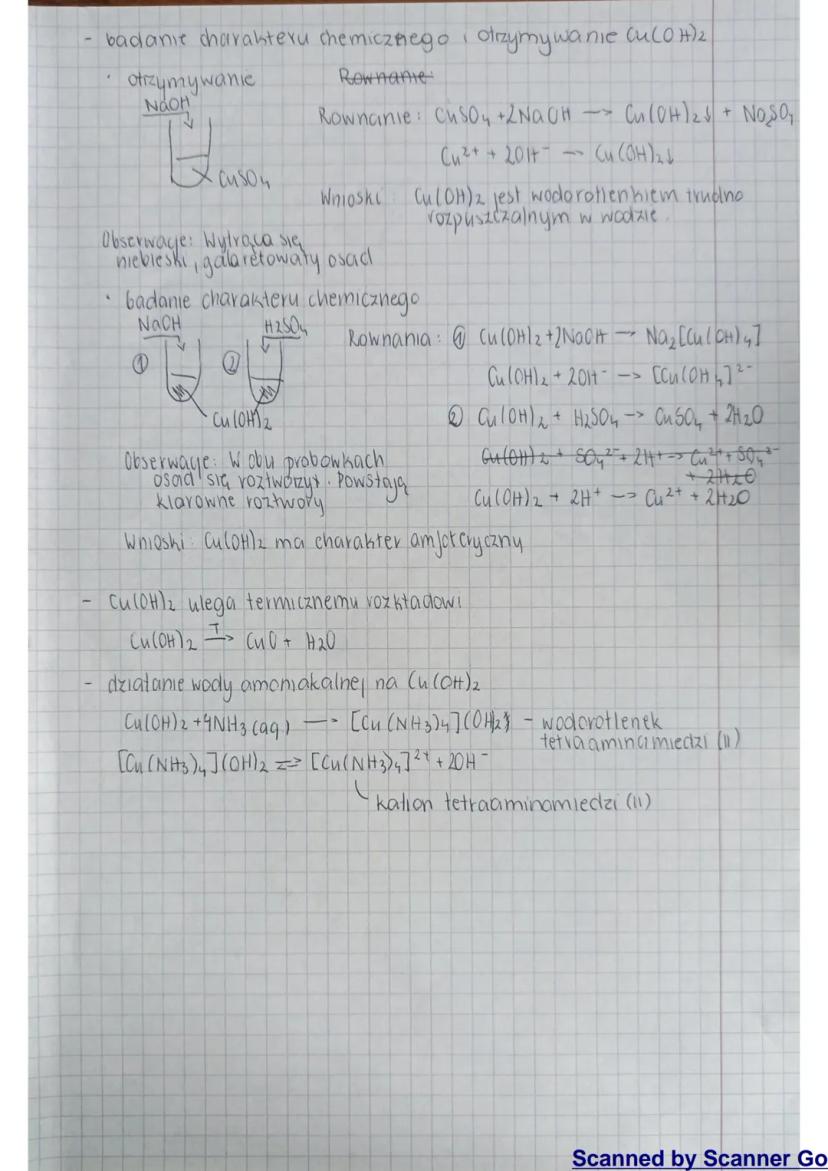 - badanie charakteru chemicznego i otrzymywanie Cu(OH)2
· otrzymywanie
Rownanie
NaOH
Rownanie: CuSO4 + 2NaOH → Cu(OH)2↓ + Na2SO4
Cu2+ + 2OH- → Cu(OH)2↓
CuSO4
Wnioski: Cu(OH)2 jest wodorotlenkiem trudno
rozpuszczalnym w wodzie.
Obserwacje: Wytrąca się
niebieski, galaretowaty osad
· badanie charakteru chemicznego
NaOH H2SO4
Rownania: ① Cu(OH)2 + 2NaOH → Na2[Cu(OH)4]
① ②
Cu(OH)2 + 2OH- → [Cu(OH)4]2-
Cu(OH)2
② Cu(OH)2 + H2SO4 → CuSO4 + 2H2O
Cu(OH)2 + SO4 2- + 2H+ → Cu2+ + SO4 2-
+ 2H2O
Obserwacje: W obu probówkach
osad się roztworzył. Powstają
klarowne roztwory
Cu(OH)2 + 2H+ → Cu2+ + 2H2O
Wnioski: Cu(OH)2 ma charakter amfoteryczny
- Cu(OH)2 ulega termicznemu rozkładowi
Cu(OH)2 T→ CuO + H2O
- działanie wody amoniakalnej na Cu(OH)2
Cu(OH)2 + 4NH3(aq) → [Cu(NH3)4](OH)2 - wodorotlenek
tetraaminamiedzi (II)
[Cu(NH3)4](OH)2 ⇌ [Cu(NH3)4]2+ + 2OH-
kation tetraaminamiedzi (II)
Scanned by Scanner Go